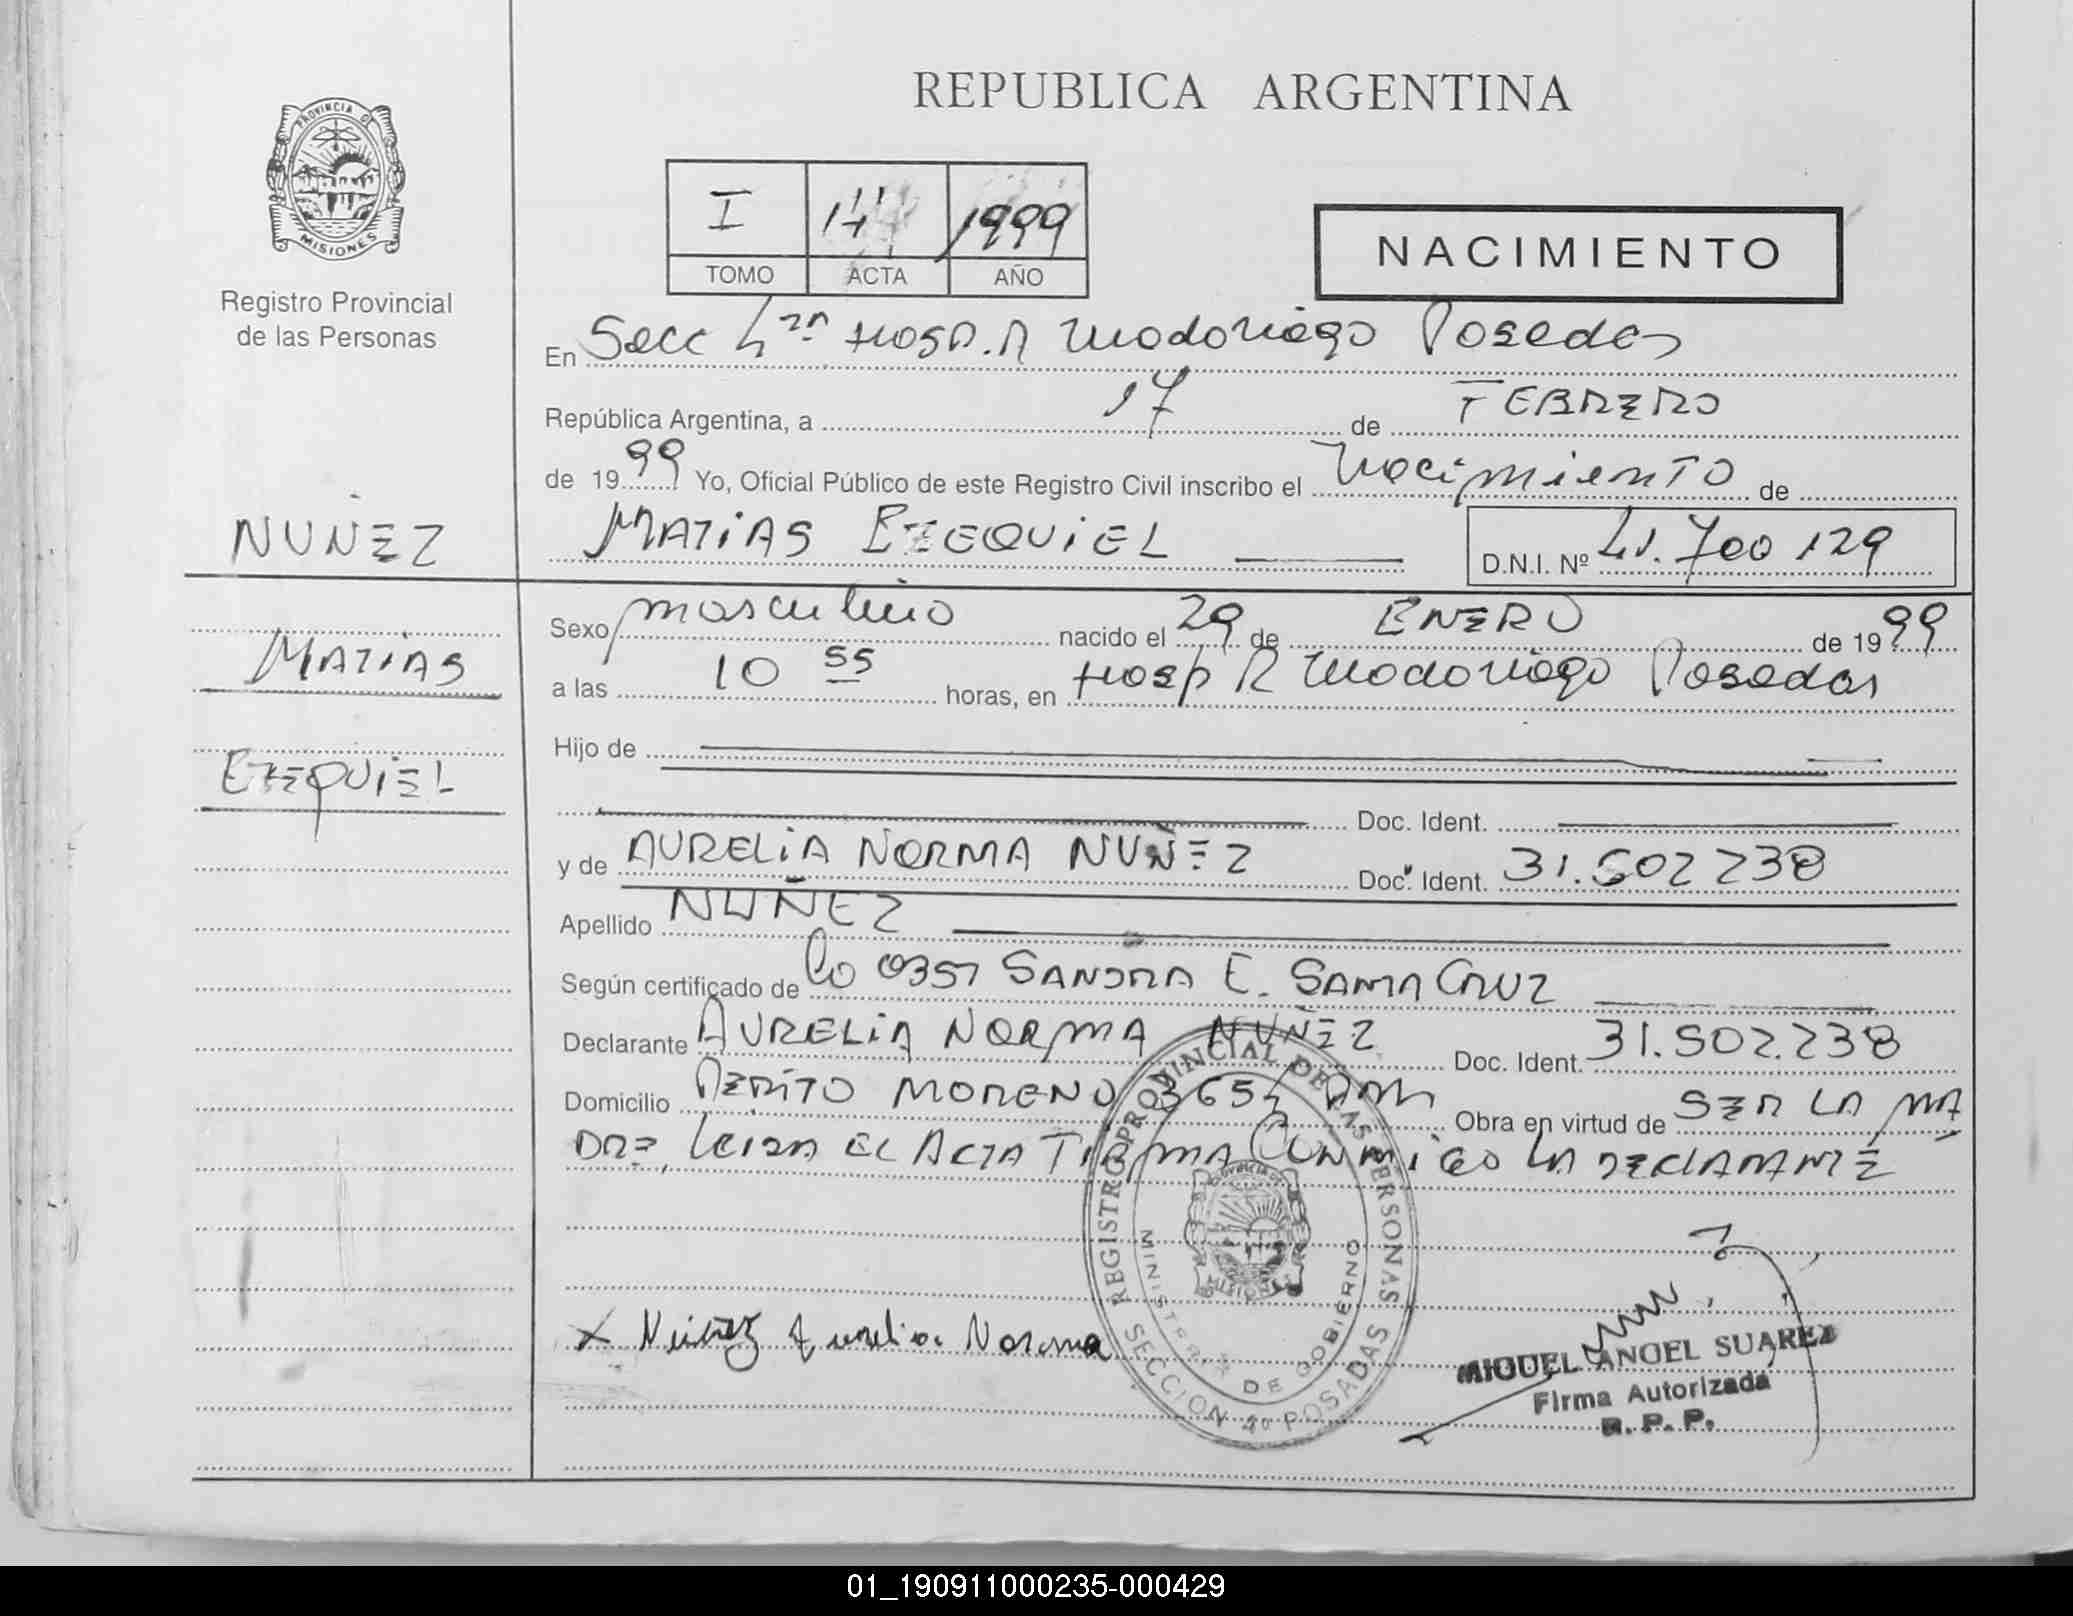 REPUBLICA ARGENTINA
PROVINCIA DE
MISIONES
Registro Provincial
de las Personas
I 1999
TOMO ACTA AÑO
NACIMIENTO
En Secc 4ta Hosp. R Madariaga Posadas
República Argentina, a 17 de FEBRERO
de 1999 Yo, Oficial Público de este Registro Civil inscribo el Nacimiento de
MATIAS EZEQUIEL D.N.I. Nº 41.700 129
NUÑEZ
MATIAS
EZEQUIEL
Sexo masculino nacido el 29 de ENERO de 1999
a las 10 55 horas, en Hosp R Madariaga Posadas
Hijo de
Doc. Ident.
y de AURELIA NORMA NUÑEZ Doc. Ident. 31.502 238
Apellido NUÑEZ
Según certificado de Co 0357 SANDRA E. SANTA CRUZ
Declarante AURELIA NORMA NUÑEZ Doc. Ident. 31.502.238
Domicilio PERITO MORENO 3654 Obra en virtud de SER LA MA
DRE, Leida EL ACTA FIRMA CONMIGO LA DECLARANTE
REGISTRO PROVINCIAL DE LAS PERSONAS
MINISTERIO DE GOBIERNO
SECCION 4a POSADAS
X Nuñez Aurelia Norma
MIGUEL ANGEL SUAREZ
Firma Autorizada
R. P. P.
01_190911000235-000429